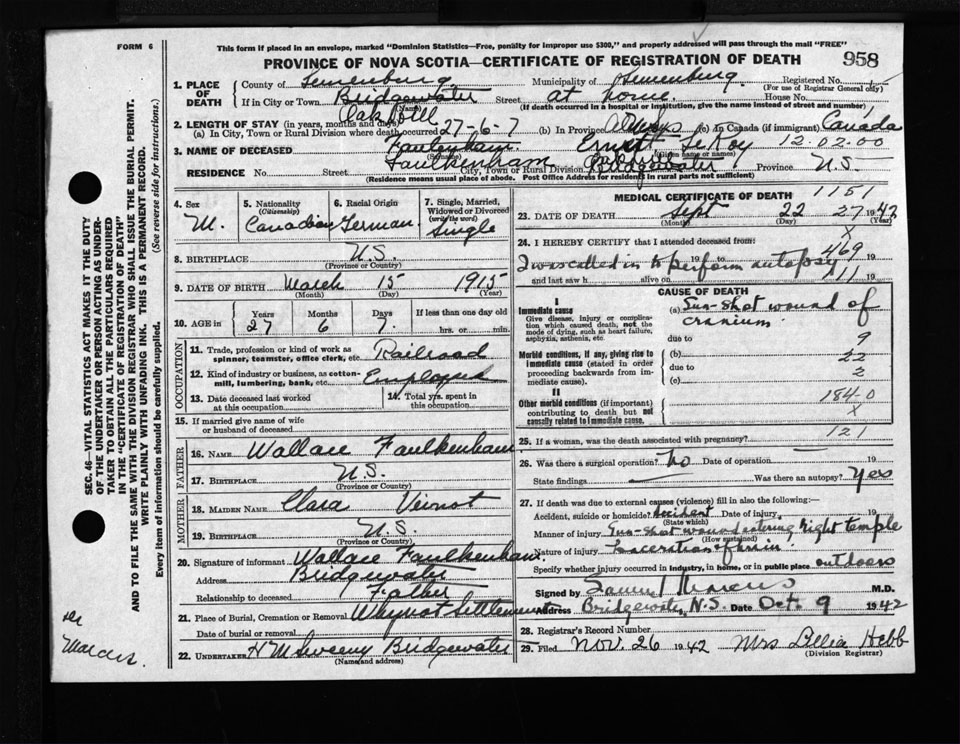 FORM 6
This form if placed in an envelope, marked "Dominion Statistics—Free, penalty for improper use $300," and properly addressed will pass through the mail "FREE"
PROVINCE OF NOVA SCOTIA—CERTIFICATE OF REGISTRATION OF DEATH
958
1. PLACE OF DEATH County of Lunenburg Municipality of Lunenburg Registered No.
(For use of Registrar General only)
If in City or Town Bridgewater Street at home House No.
(Name) (If death occurred in a hospital or institution, give the name instead of street and number)
2. LENGTH OF STAY (in years, months and days)
(a) In City, Town or Rural Division where death occurred 27-6-7 (b) In Province Always (c) In Canada (if immigrant) Canada
3. NAME OF DECEASED Faulkenham Ernest LeRoy 12.02.00
(Surname) (Given or Christian names)
RESIDENCE No. Street City, Town or Rural Division Bridgewater Province N.S.
(Residence means usual place of abode. Post Office Address for residence in rural parts not sufficient)
4. Sex
M.
5. Nationality
(Citizenship)
Canadian
6. Racial Origin
German
7. Single, Married, Widowed or Divorced
(write the word)
Single
8. BIRTHPLACE N.S.
(Province or Country)
9. DATE OF BIRTH March 15 1915
(Month) (Day) (Year)
10. AGE in Years Months Days If less than one day old
27 6 7 hrs. or min.
OCCUPATION
11. Trade, profession or kind of work as spinner, teamster, office clerk, etc. Railroad
12. Kind of industry or business, as cotton-mill, lumbering, bank, etc. Employee
13. Date deceased last worked at this occupation
14. Total yrs. spent in this occupation
15. If married give name of wife or husband of deceased
FATHER
16. NAME Wallace Faulkenham
17. BIRTHPLACE N.S.
(Province or Country)
MOTHER
18. MAIDEN NAME Clara Veinot
19. BIRTHPLACE N.S.
(Province or Country)
20. Signature of informant Wallace Faulkenham
Address Bridgewater
Relationship to deceased Father
21. Place of Burial, Cremation or Removal Whynot Settlement
Date of burial or removal
22. UNDERTAKER H M Sweeny Bridgewater
(Name and address)
MEDICAL CERTIFICATE OF DEATH 1151
23. DATE OF DEATH Sept 22 27 1942
(Month) (Day) (Year)
X
24. I HEREBY CERTIFY that I attended deceased from:
19 to 469 19
I was called in to perform autopsy
and last saw h alive on 111 19
CAUSE OF DEATH
I
Immediate cause
Give disease, injury or complication which caused death, not the mode of dying, such as heart failure, asphyxia, asthenia, etc.
(a) Gun-shot wound of
cranium.
due to 9
Morbid conditions, if any, giving rise to immediate cause (stated in order proceeding backwards from immediate cause).
(b) 22
due to 2
(c)
II
Other morbid conditions (if important) contributing to death but not causally related to immediate cause.
184-0
X
25. If a woman, was the death associated with pregnancy? 121
26. Was there a surgical operation? No Date of operation 19
State findings — Was there an autopsy? Yes
27. If death was due to external causes (violence) fill in also the following:—
Accident, suicide or homicide? Accident Date of injury 19
(State which)
Manner of injury Gun-shot wound entering right temple
(How sustained)
Nature of injury Laceration of brain
Specify whether injury occurred in industry, in home, or in public place outdoors
Signed by Samuel Marcus M.D.
Address Bridgewater, N.S. Date Oct. 9 1942
28. Registrar's Record Number
29. Filed Nov. 26 1942 Mrs Lellia Hebb
(Division Registrar)
SEC. 46—VITAL STATISTICS ACT MAKES IT THE DUTY OF THE UNDERTAKER OR PERSON ACTING AS UNDERTAKER TO OBTAIN ALL THE PARTICULARS REQUIRED IN THE "CERTIFICATE OF REGISTRATION OF DEATH"
AND TO FILE THE SAME WITH THE DIVISION REGISTRAR WHO SHALL ISSUE THE BURIAL PERMIT.
WRITE PLAINLY WITH UNFADING INK. THIS IS A PERMANENT RECORD.
Every item of information should be carefully supplied. (See reverse side for instructions.)
Marcus.